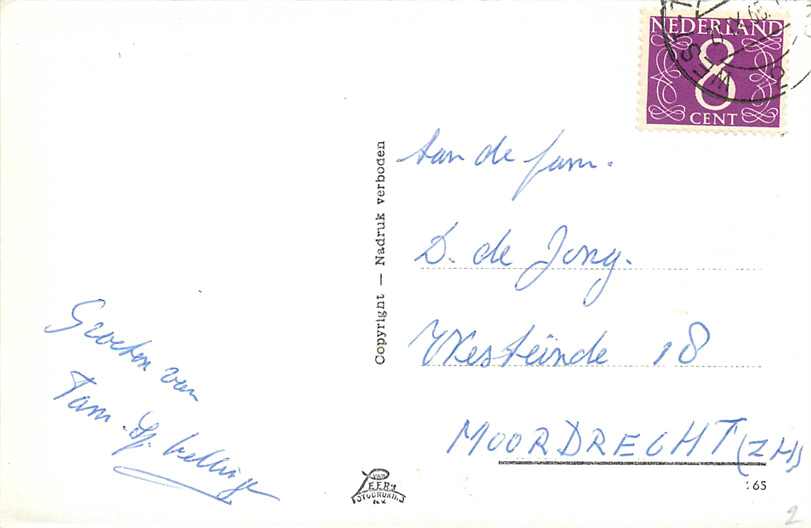 NEDERLAND
8
CENT
Copyright — Nadruk verboden
Aan de fam.
D. de Jong.
Westeinde 18
MOORDRECHT (ZH)
Groeten van
Fam.
VAN LEER'S
FOTODRUKIND.
N.V.
65
2